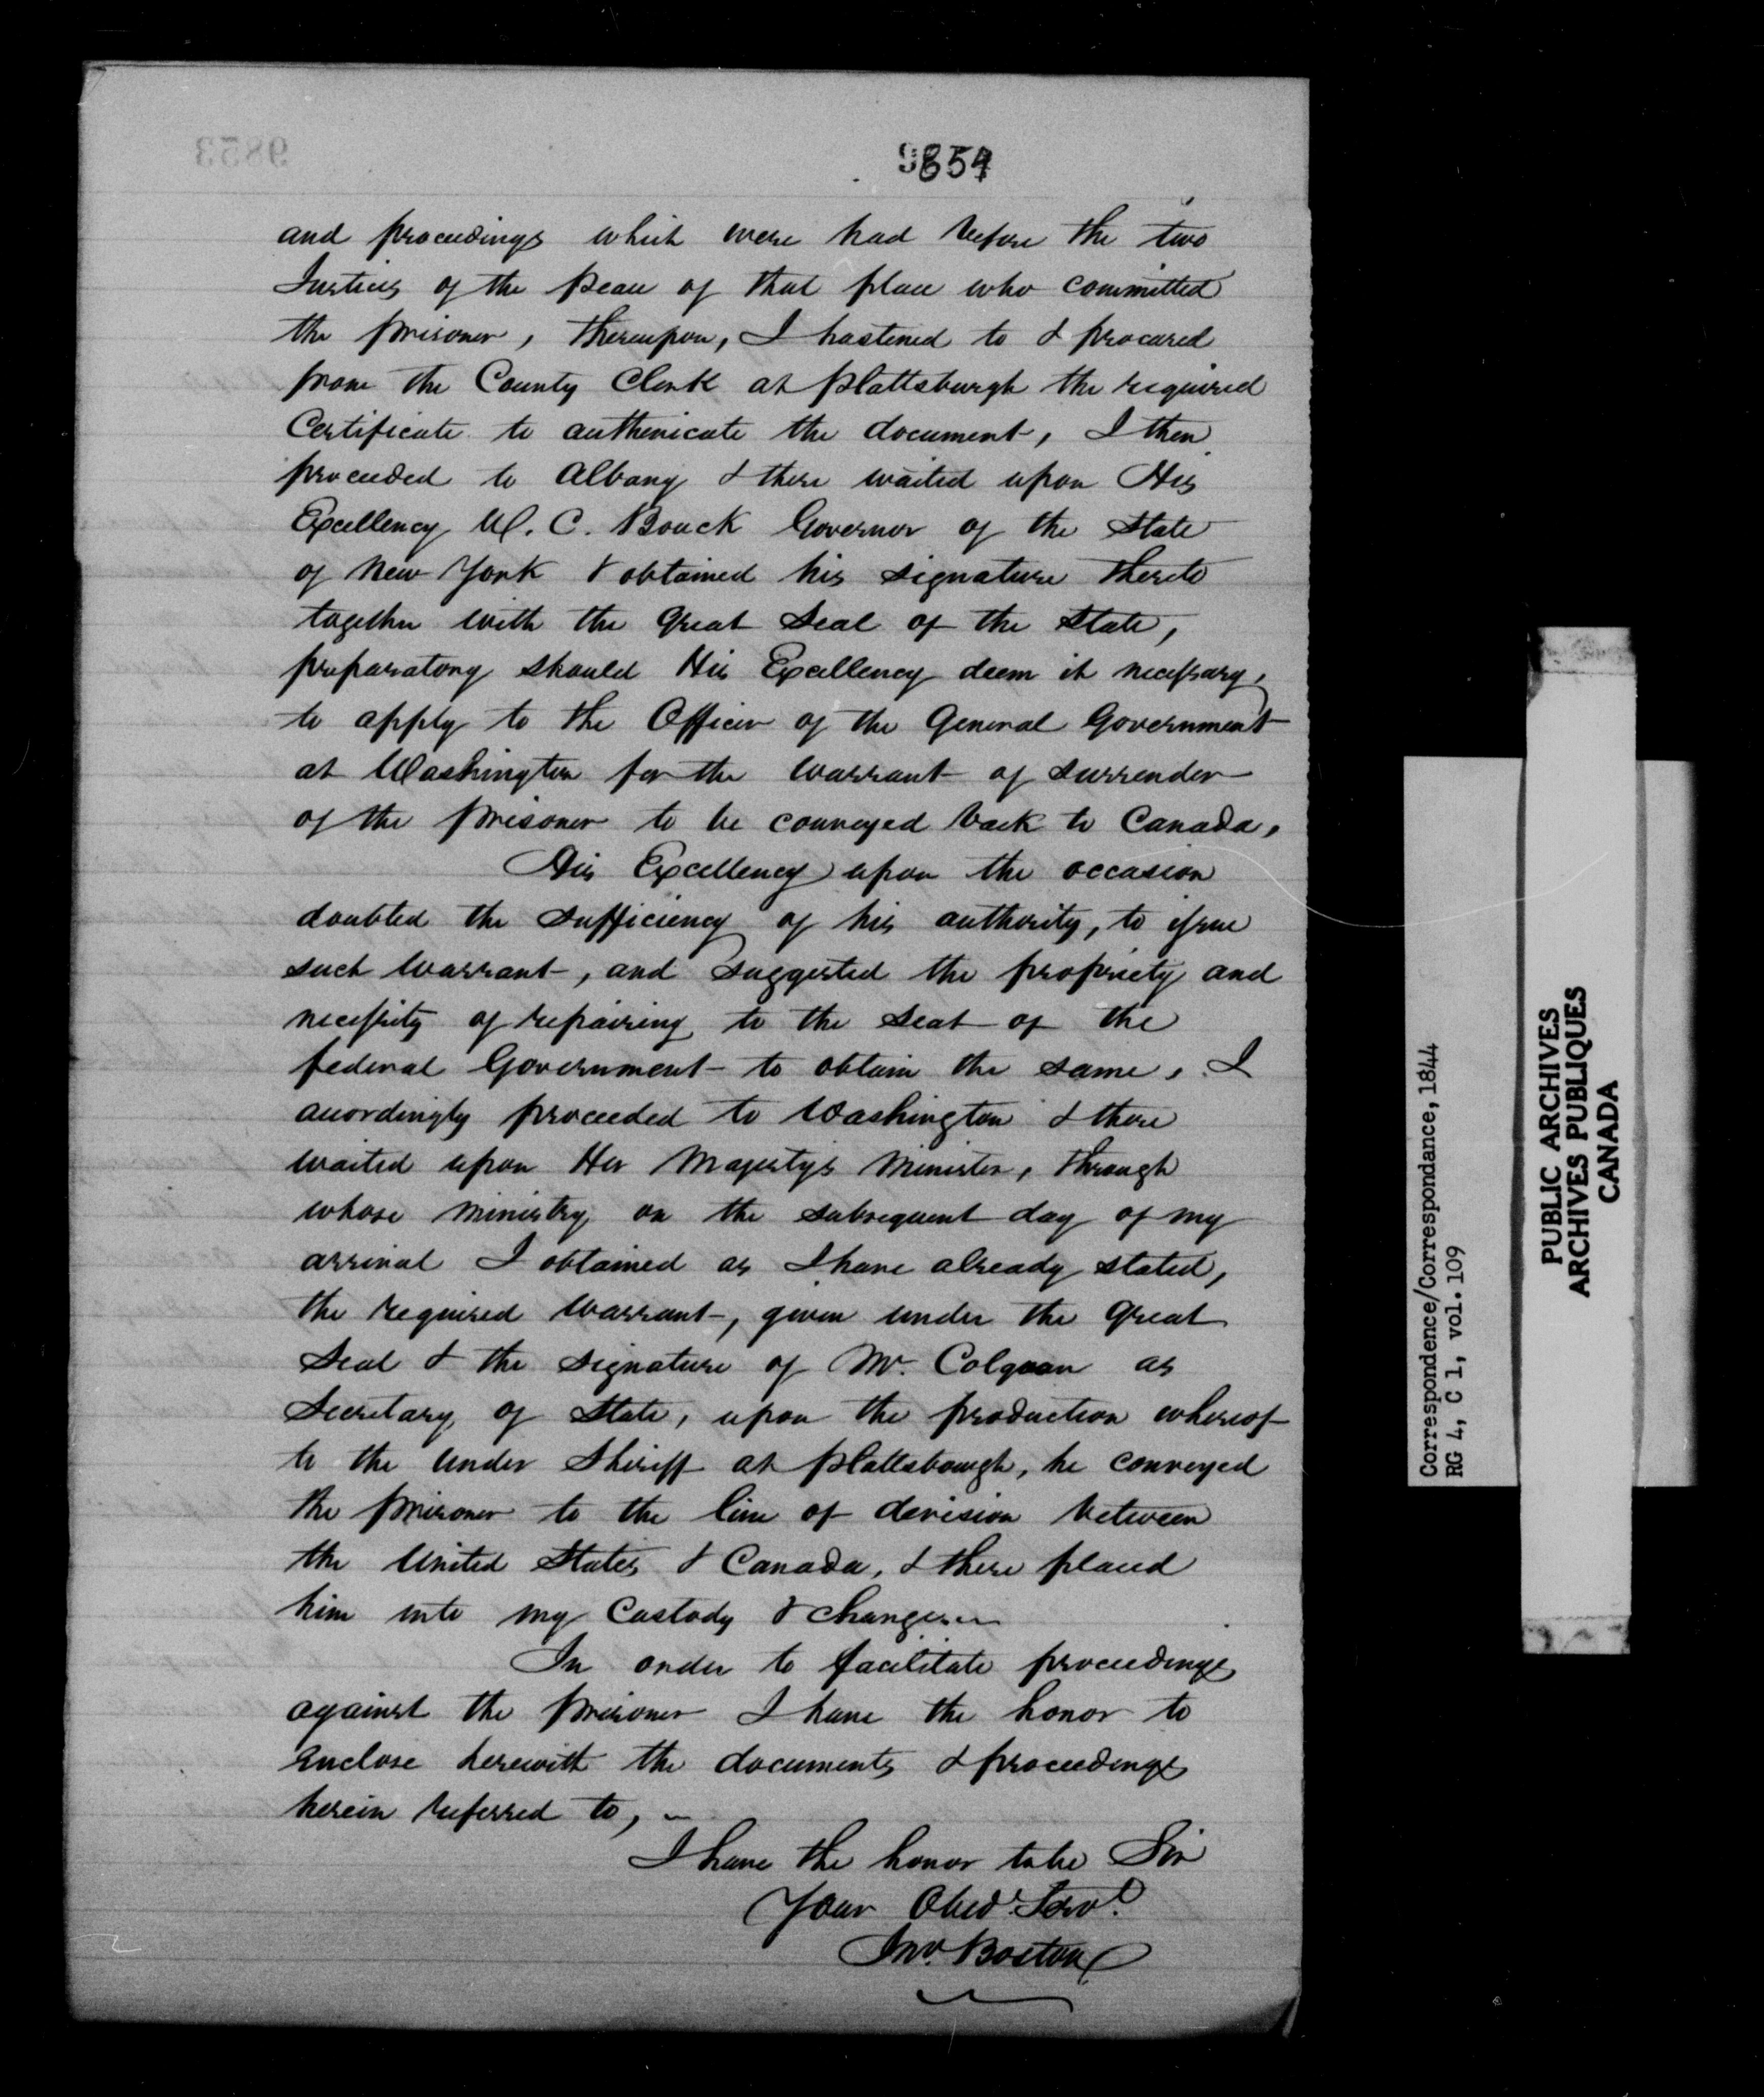 9854
and proceedings which were had before the two
Justices of the peace of that place who committed
the prisoner, thereupon, I hastened to & procured
from the County Clerk at plattsburgh the required
Certificate to authenicate the document, I then
proceeded to Albany & there waited upon His
Excellency W. C. Bouck Governor of the State
of New York & obtained his signature thereto
together with the Great Seal of the State,
preparatory should His Excellency deem it necessary,
to apply to the Officer of the General Government
at Washington for the warrant of surrender
of the prisoner to be conveyed back to Canada,
His Excellency upon the occasion
doubted the sufficiency of his authority, to issue
such warrant, and suggested the propriety and
necessity of repairing to the Seat of the
federal Government to obtain the same, I
accordingly proceeded to Washington & there
waited upon Her Majesty's Minister, through
whose ministry on the subsequent day of my
arrival I obtained as I have already stated,
the required warrant, given under the great
Seal & the signature of Mr. Colquon as
Secretary of State, upon the production whereof
to the under Sheriff at plattsbourgh, he conveyed
the prisoner to the line of devision between
the United States & Canada, & there placed
him into my Custody & charge.
In order to facilitate proceedings
against the prisoner I have the honor to
enclose herewith the documents & proceedings
herein referred to,
I have the honor to be Sir
Your Obed.t Serv.t
Jno. Boston
Correspondence/Correspondance, 1844
RG 4, C 1, vol. 109
PUBLIC ARCHIVES
ARCHIVES PUBLIQUES
CANADA